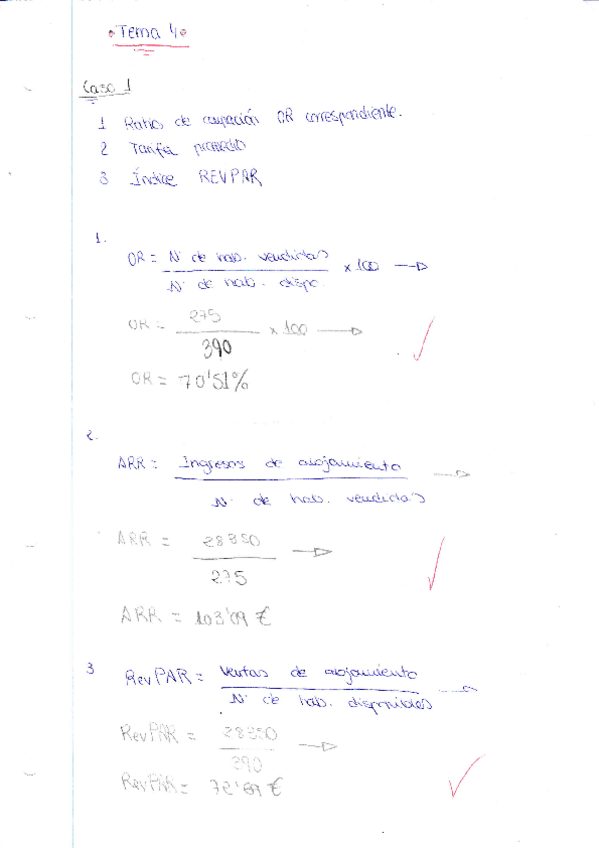 Tema 4
Caso 1
1 Ratio de ocupación OR correspondiente.
2 Tarifa promedio
3 Índice REVPAR
1.
OR = Nº de hab. vendidas
x 100
Nº de hab. dispo.
OR = 275
x 100
390
OR = 70'51%
2.
ARR = Ingresos de alojamiento
Nº de hab. vendidas
ARR = 28350
275
ARR = 103'09 €
3 RevPAR = Ventas de alojamiento
Nº de hab. disponibles
RevPAR = 28350
390
RevPAR = 72'69 €